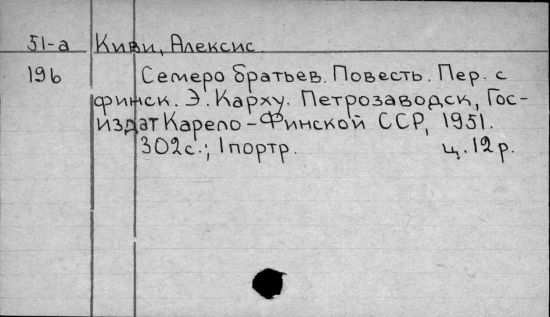 51-а Киви, Алексис.
196 Семеро братьев. Повесть. Пер. с
финск. Э. Карху. Петрозаводск, Гос-
издат Карело-Финской ССР, 1951.
302с.; 1 портр. ц. 12 р.